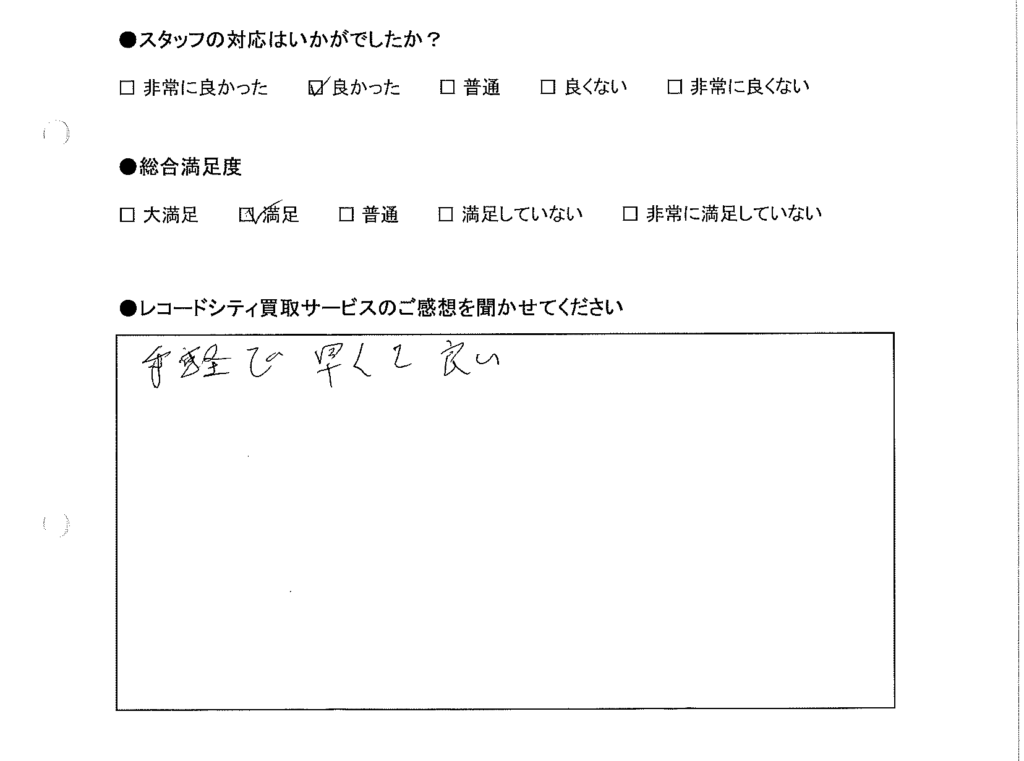 ●スタッフの対応はいかがでしたか？
□ 非常に良かった ☑ 良かった □ 普通 □ 良くない □ 非常に良くない
●総合満足度
□ 大満足 ☑ 満足 □ 普通 □ 満足していない □ 非常に満足していない
●レコードシティ買取サービスのご感想を聞かせてください
手軽で 早くて 良い